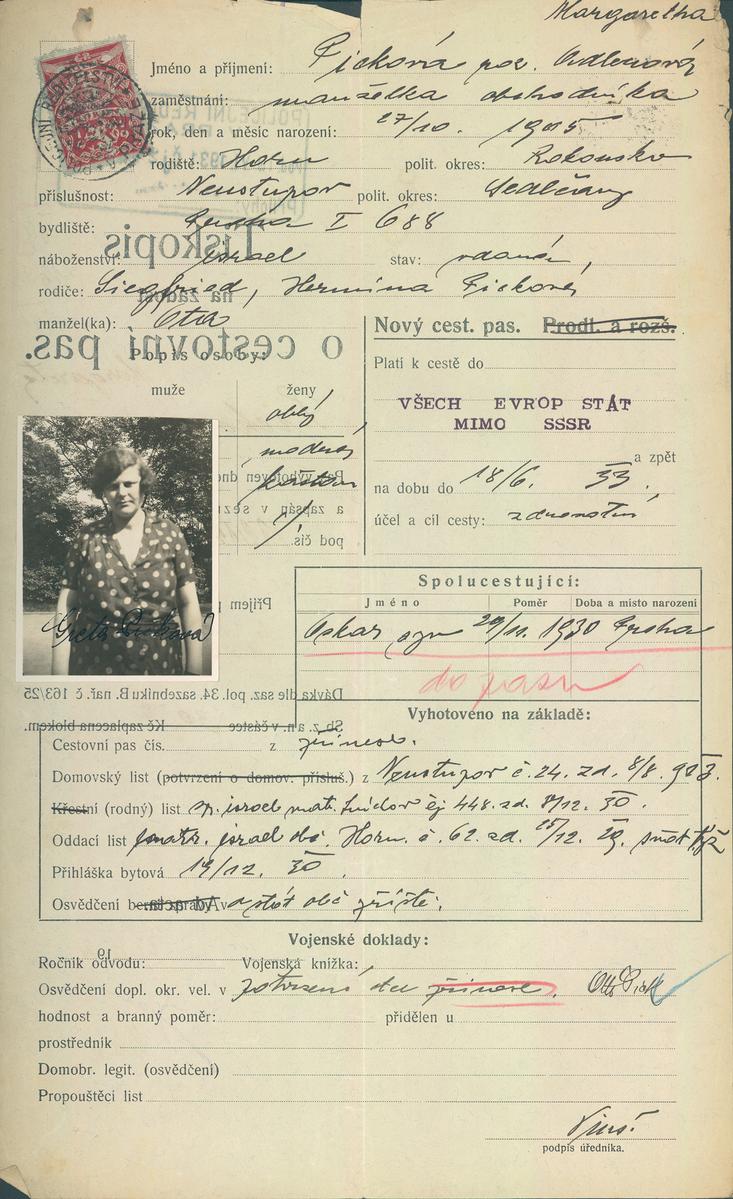 Margaretha
Jméno a příjmení: Picková roz. Adlerová
zaměstnání: manželka obchodníka
rok, den a měsíc narození: 27/10. 1905
rodiště: Horn polit. okres: Rakousko
příslušnost: Neustupov polit. okres: Sedlčany
bydliště: Praha I 688
náboženství: israel stav: vdaná,
rodiče: Siegfried, Hermína Picková
manžel(ka): Ota
Popis osoby:
Nový cest. pas. Prodl. a rozš.
Platí k cestě do
muže ženy
oblý
VŠECH EVROP STÁT
MIMO SSSR
modré
a zpět
na dobu do 18/6. 33.
účel a cíl cesty: zdravotní
Spolucestující:
Jméno Poměr Doba a místo narození
Oskar syn 29/11. 1930 Praha
Greta Picková
do pasu
Vyhotoveno na základě:
Cestovní pas čís. z
Domovský list (potvrzení o domov. přísluš.) z Neustupov č. 24. zd. 8/8.
Křestní (rodný) list israel mat. čj 448. zd. 12. 30.
Oddací list matr. israel ob. Horn. č. 62. zd. 25/12. 29.
Přihláška bytová 19/12. 30.
Osvědčení
Vojenské doklady:
Ročník odvodu: 19 Vojenská knížka:
Osvědčení dopl. okr. vel. v Otto Pick
hodnost a branný poměr: přidělen u
prostředník
Domobr. legit. (osvědčení)
Propouštěcí list
podpis úředníka.
Tiskopis
na žádost
o cestovní pas.
Příjem
Dávka dle saz. pol. 34. sazebníku B. nař. č. 163/25
Sb. z. a n. v částce Kč zaplacena blokem.